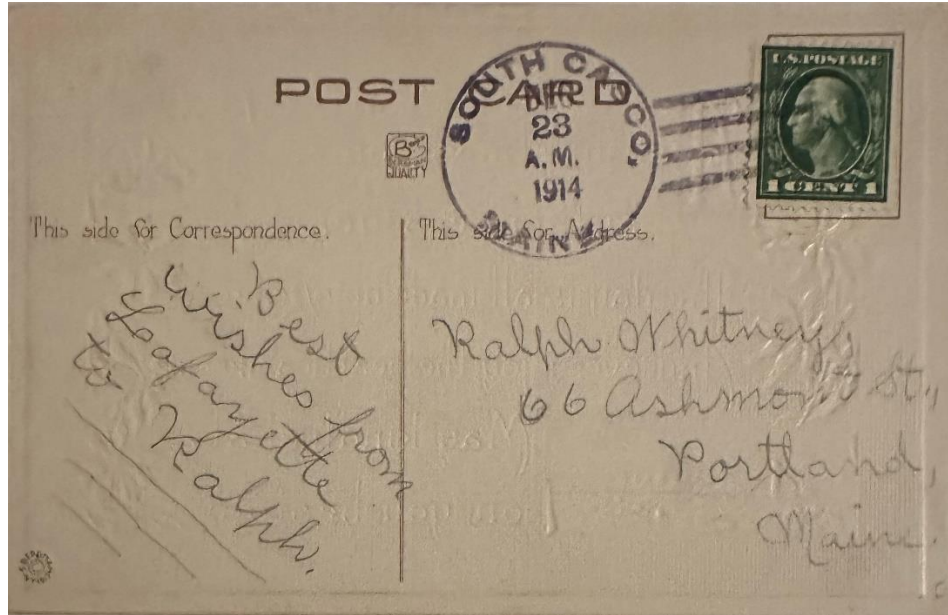 POST CARD
SOUTH CASCO,
DEC
23
A.M.
1914
MAINE
U.S. POSTAGE
1 CENT 1
QUALITY
This side for Correspondence.
This side for Address.
Best
wishes from
Lafayette
to
Ralph.
Ralph Whitney,
66 Ashmont St.,
Portland,
Maine.